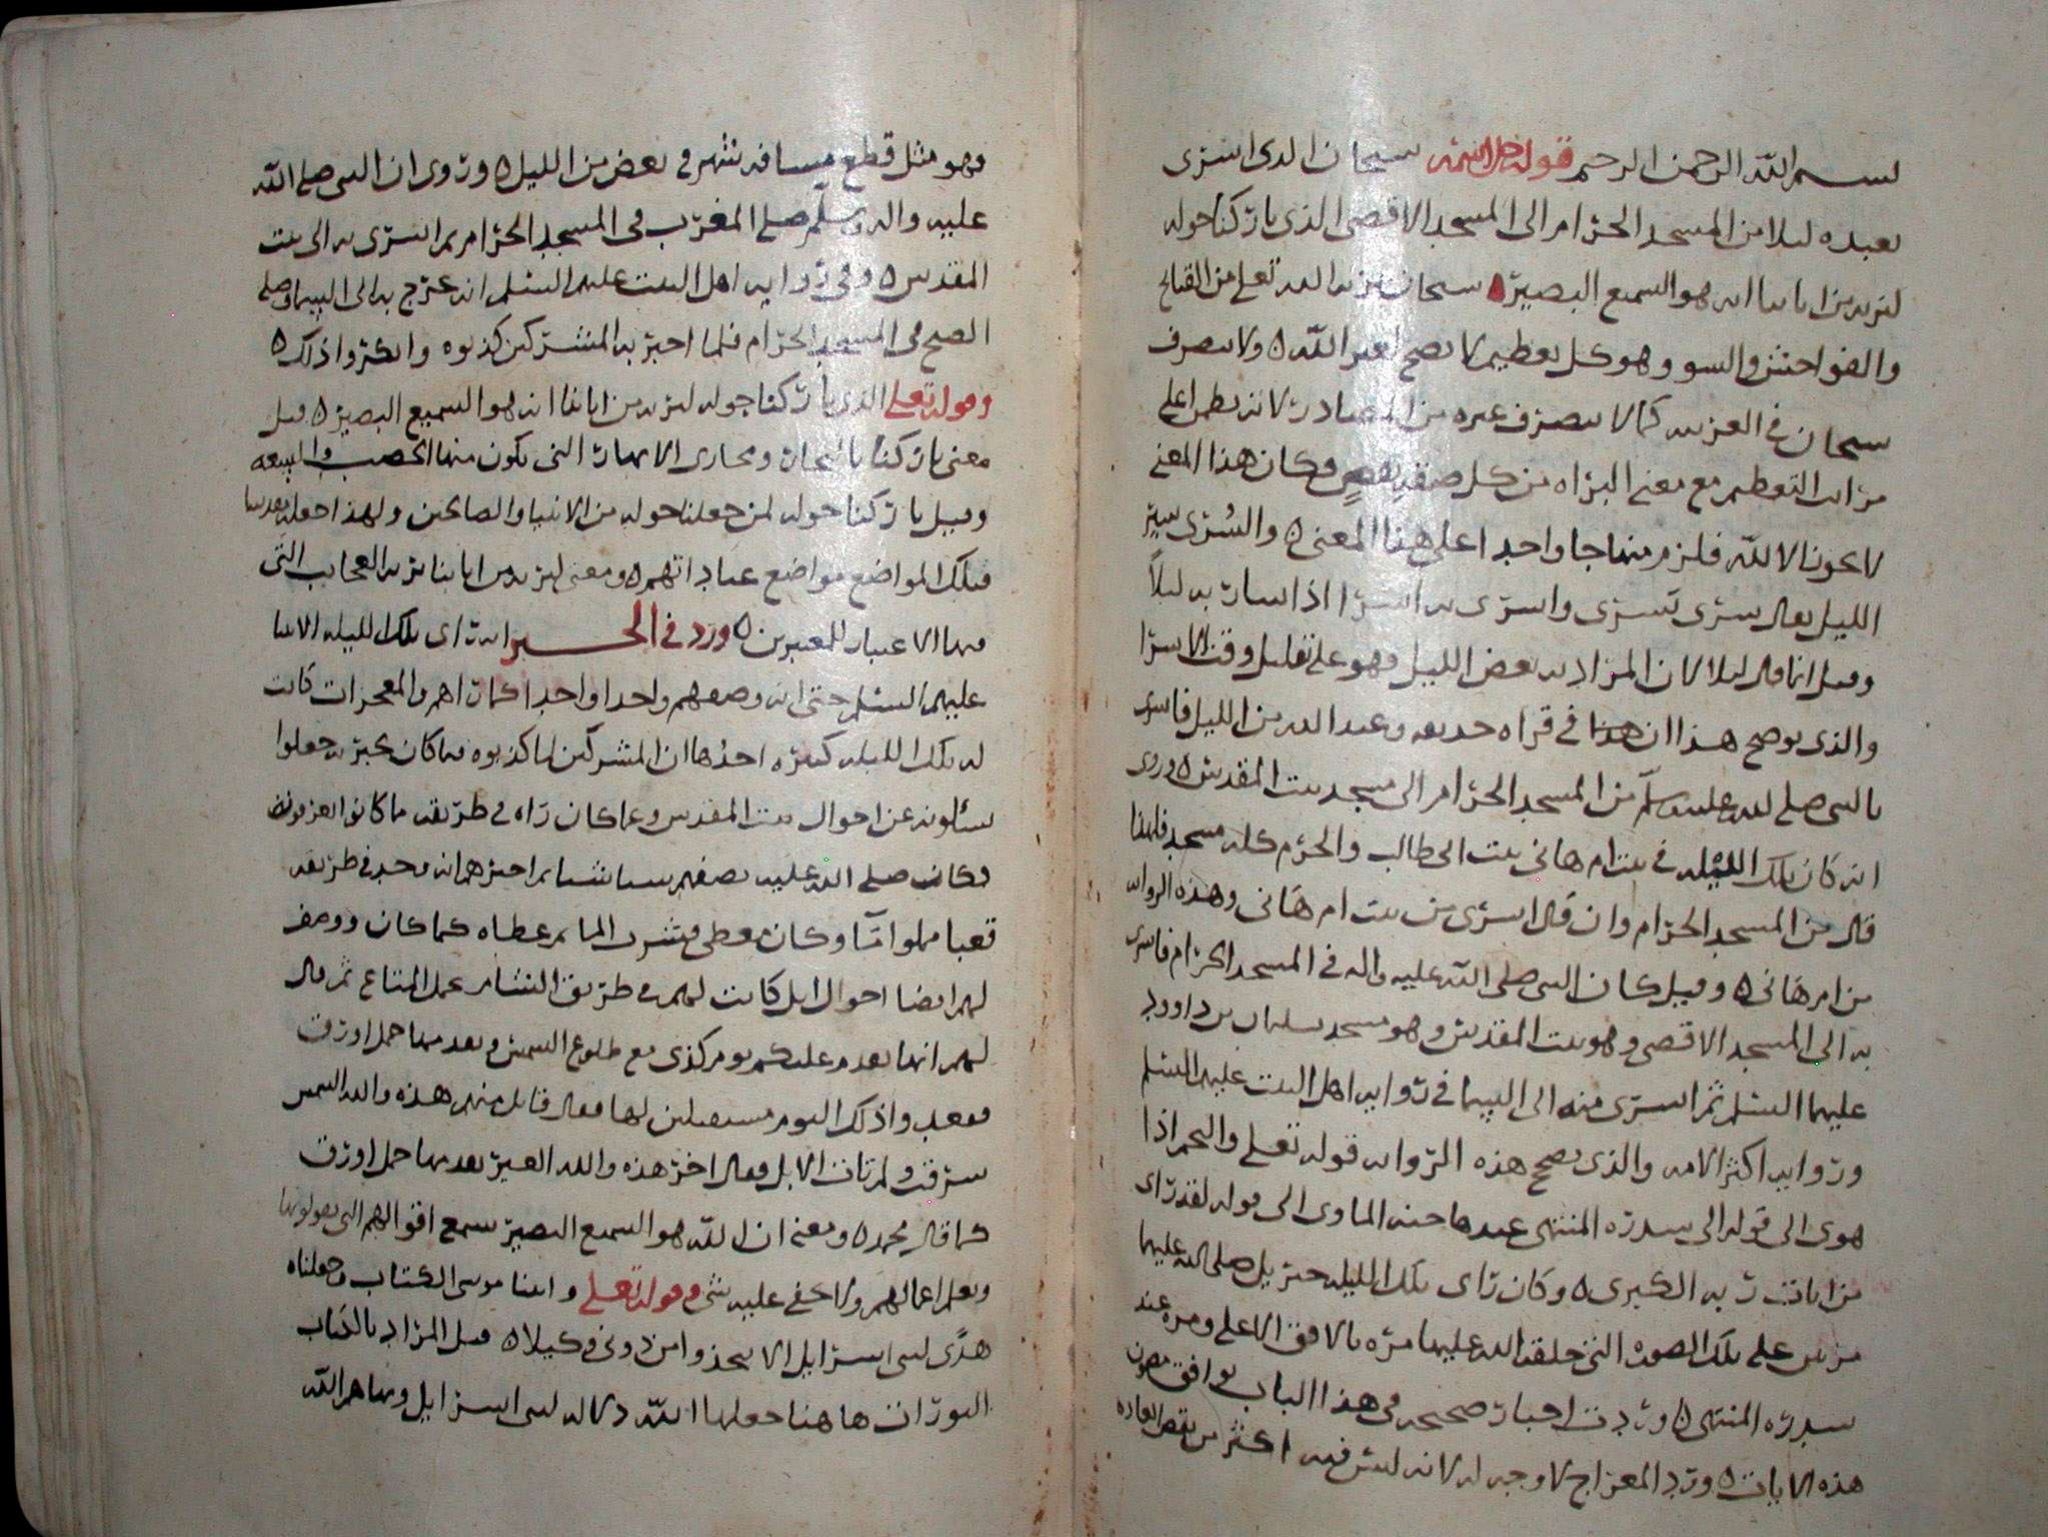 بسم الله الرحمن الرحيم قوله جل اسمه سبحان الذى اسرى
بعبده ليلا من المسجد الحرام الى المسجد الاقصى الذى باركنا حوله
لنريه من اياتنا انه هو السميع البصير سبحان تنزيه الله تعلى من القبائح
والفواحش والسوو وهو كل تعظيم لا يصح لغير الله ولا يتصرف
سبحان فى العربيه كما لا يتصرف غيره من المصادر لانه نظير اعلى
مراتب التعظيم مع معنى البراه من كل صفة نقص وكان هذا المعنى
لا يكون الا لله فلزم منهاجا واحدا على هذا المعنى والسرى سير
الليل يقال سرى يسرى واسرى به اسرا اذا سار به ليلاً
وقيل انما قال ليلا لان المراد به بعض الليل فهو على تقليل وقت الاسرا
والذى يوضح هذا ان هذا فى قراه حذيفه وعبد الله من الليل فاسرى
بالنبى صلى الله عليه وسلم من المسجد الحرام الى مسجد بيت المقدس وروى
انه كان تلك الليله فى بيت ام هانى بنت ابى طالب والحرم كله مسجد فلهذا
قال من المسجد الحرام وان قال اسرى من بيت ام هانى وهذه الروايه
من ام هانى وقيل كان النبى صلى الله عليه واله فى المسجد الحرام فاسرى
به الى المسجد الاقصى وهو بيت المقدس وهو مسجد سليمان بن داوود
عليهما السلم ثم اسرى منه الى السما فى روايه اهل البيت عليهم السلم
وروايه اكثر الامه والذى يصحح هذه الروايه قوله تعلى والنجم اذا
هوى الى قوله الى سدره المنتهى عندها جنه الماوى الى قوله لقد راى
من ايات ربه الكبرى وكان راى تلك الليله جبريل صلى الله عليهما
مرتين على تلك الصوره التى خلقه الله عليها مره بالافق الاعلى ومره عند
سدره المنتهى وردت اخبار صحيحه فى هذا الباب يوافق مضمون
هذه الايات ورد المعراج لا وجه له لانه ليس فيه اكثر من نقض العاده
وهو مثل قطع مسافه شهر فى بعض من الليل وروى ان النبى صلى الله
عليه واله وسلم صلى المغرب فى المسجد الحرام ثم اسرى به الى بيت
المقدس وفى روايه اهل البيت عليهم السلم انه عرج به الى السما وصلى
الصبح فى المسجد الحرام فلما اخبر به المشركين كذبوه وانكروا ذلك
وقوله تعلى الذى باركنا حوله لنريه من اياتنا انه هو السميع البصير قيل
معنى باركنا بالثمار ومجارى الانهار التى يكون منها الخصب والسعه
وقيل باركنا حوله لمن جعلنا حوله من الانبيا والصالحين ولهذا جعله مقدسا
فتلك المواضع مواضع عباداتهم ومعنى لنريه من اياتنا نريه العجايب التى
فيها الاعتبار للمعتبرين ورد فى الخبر انه راى تلك الليله الانبيا
عليهم السلم حتى انه وصفهم واحدا واحدا كما راهم والمعجزات كانت
له تلك الليله كثيره احدها ان المشركين لما كذبوه فيما كان يخبر به جعلوا
يسئلونه عن احوال بيت المقدس وعما كان راه فى طريقه ما كانوا يعرفونه
فكان صلى الله عليه يصفهم شيا شيا ثم اخبرهم انه وجد فى طريقه
قعبا مملوا ماً وكان مغطى فشرب الما ثم غطاه كما كان ووصف
لهم ايضا احوال ابل كانت لهم فى طريق الشام تحمل المتاع ثم قال
لهم انها تقدم عليكم يوم كذى مع طلوع الشمس ويقدمها جمل اورق
فقعدوا ذلك اليوم مستقبلين لها فقال قايل منهم هذه والله الشمس
شرقت ولم تات الابل وقال اخر هذه والله العير يقدمها جمل اورق
كما قال محمد ومعنى ان الله هو السميع البصير سمع اقوالهم التى يقولونها
ويعلم اعمالهم ولا يخفى عليه شى وقوله تعلى واتينا موسى الكتاب وجعلناه
هدًى لبنى اسرايل الا يتخذوا من دونى وكيلا قيل المراد بالكتاب
التورات هاهنا جعلها الله دلاله لبنى اسرايل وسماهم الله